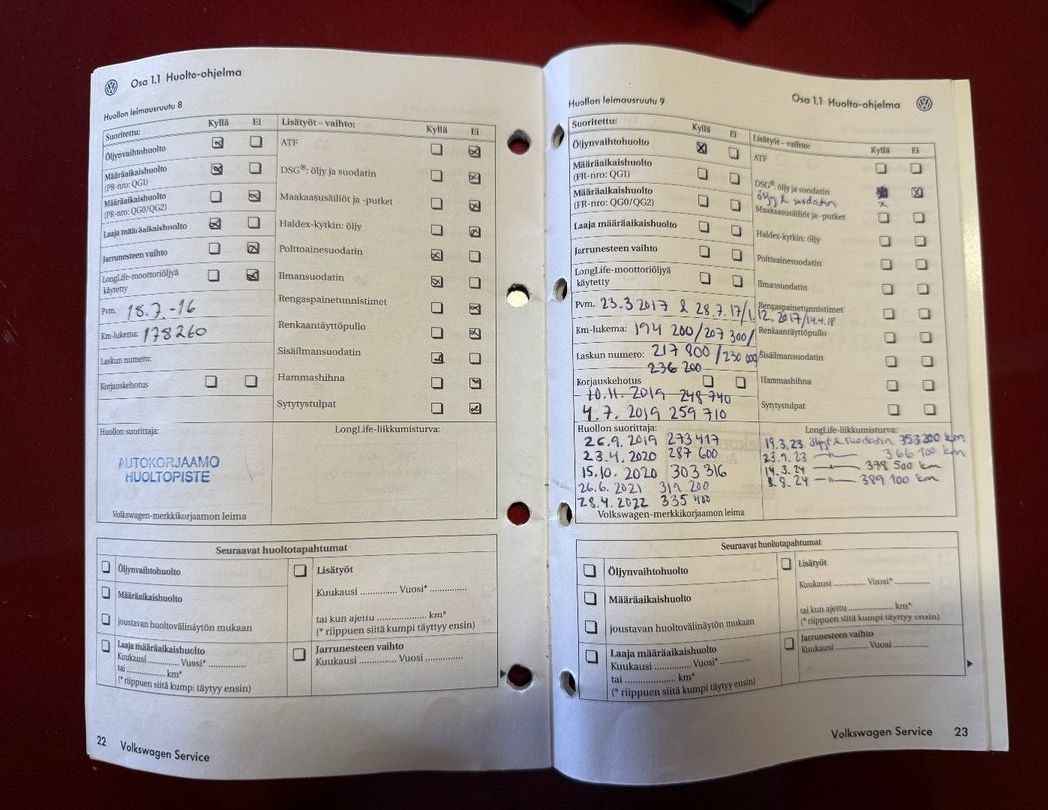 Osa 1.1 Huolto-ohjelma
Huollon leimausruutu 8
Suoritettu:
Kyllä Ei
Öljynvaihtohuolto
Määräaikaishuolto
(PR-nro: QG1)
Määräaikaishuolto
(PR-nro: QG0/QG2)
Laaja määräaikaishuolto
Jarrunesteen vaihto
LongLife-moottoriöljyä
käytetty
Pvm. 18.7.-16
Km-lukema: 178260
Laskun numero:
Korjauskehotus
Lisätyöt – vaihto:
Kyllä Ei
ATF
DSG®: öljy ja suodatin
Maakaasusäiliöt ja -putket
Haldex-kytkin: öljy
Polttoainesuodatin
Ilmansuodatin
Rengaspainetunnistimet
Renkaantäyttöpullo
Sisäilmansuodatin
Hammashihna
Sytytystulpat
Huollon suorittaja:
AUTOKORJAAMO
HUOLTOPISTE
Volkswagen-merkkikorjaamon leima
LongLife-liikkumisturva:
Seuraavat huoltotapahtumat
Öljynvaihtohuolto
Määräaikaishuolto
joustavan huoltovälinäytön mukaan
Laaja määräaikaishuolto
Kuukausi .......... Vuosi* ............
tai .............. km*
(* riippuen siitä kumpi täytyy ensin)
Lisätyöt
Kuukausi ............. Vuosi* .............
tai kun ajettu ................ km*
(* riippuen siitä kumpi täyttyy ensin)
Jarrunesteen vaihto
Kuukausi ............ Vuosi .............
22 Volkswagen Service
Huollon leimausruutu 9
Osa 1.1 Huolto-ohjelma
Suoritettu:
Kyllä Ei
Öljynvaihtohuolto
Määräaikaishuolto
(PR-nro: QG1)
Määräaikaishuolto
(PR-nro: QG0/QG2)
Laaja määräaikaishuolto
Jarrunesteen vaihto
LongLife-moottoriöljyä
käytetty
Pvm. 23.3 2017 & 28.7.17/1.12.2017/14.4.18
Km-lukema: 194 200/207 300/
Laskun numero: 217 800 /230 000
236 200
Korjauskehotus
10.11. 2019 248 740
4.7. 2019 259 710
Lisätyöt – vaihto:
Kyllä Ei
ATF
DSG®: öljy ja suodatin
öljy & suodatin x
Maakaasusäiliöt ja -putket
Haldex-kytkin: öljy
Polttoainesuodatin
Ilmansuodatin
Rengaspainetunnistimet
Renkaantäyttöpullo
Sisäilmansuodatin
Hammashihna
Sytytystulpat
Huollon suorittaja:
26.9. 2019 273 417
23.4. 2020 287 600
15.10. 2020 303 316
26.6. 2021 319 200
28.4. 2022 335 400
Volkswagen-merkkikorjaamon leima
LongLife-liikkumisturva:
19.3.23 öljyt & suodatin 353 200 km
23.9.23 —"— 366 100 km
14.3.24 —"— 378 500 km
8.8.24 —"— 389 100 km
Seuraavat huoltotapahtumat
Öljynvaihtohuolto
Määräaikaishuolto
joustavan huoltovälinäytön mukaan
Laaja määräaikaishuolto
Kuukausi .......... Vuosi* ............
tai .............. km*
(* riippuen siitä kumpi täytyy ensin)
Lisätyöt
Kuukausi ............. Vuosi* .............
tai kun ajettu ................ km*
(* riippuen siitä kumpi täyttyy ensin)
Jarrunesteen vaihto
Kuukausi ............ Vuosi .............
Volkswagen Service 23